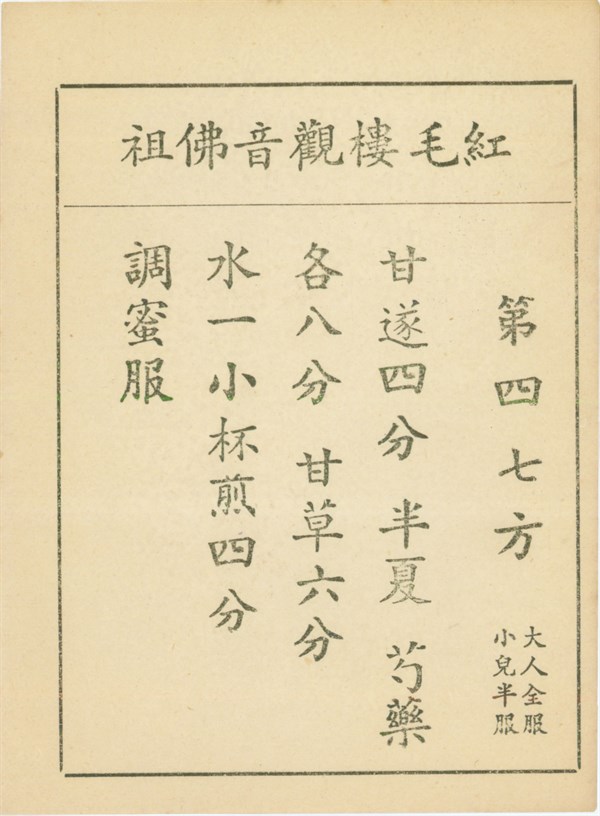 紅毛樓觀音佛祖
第四七方
大人全服
小兒半服
甘遂四分 半夏 芍藥
各八分 甘草六分
水一小杯煎四分
調蜜服